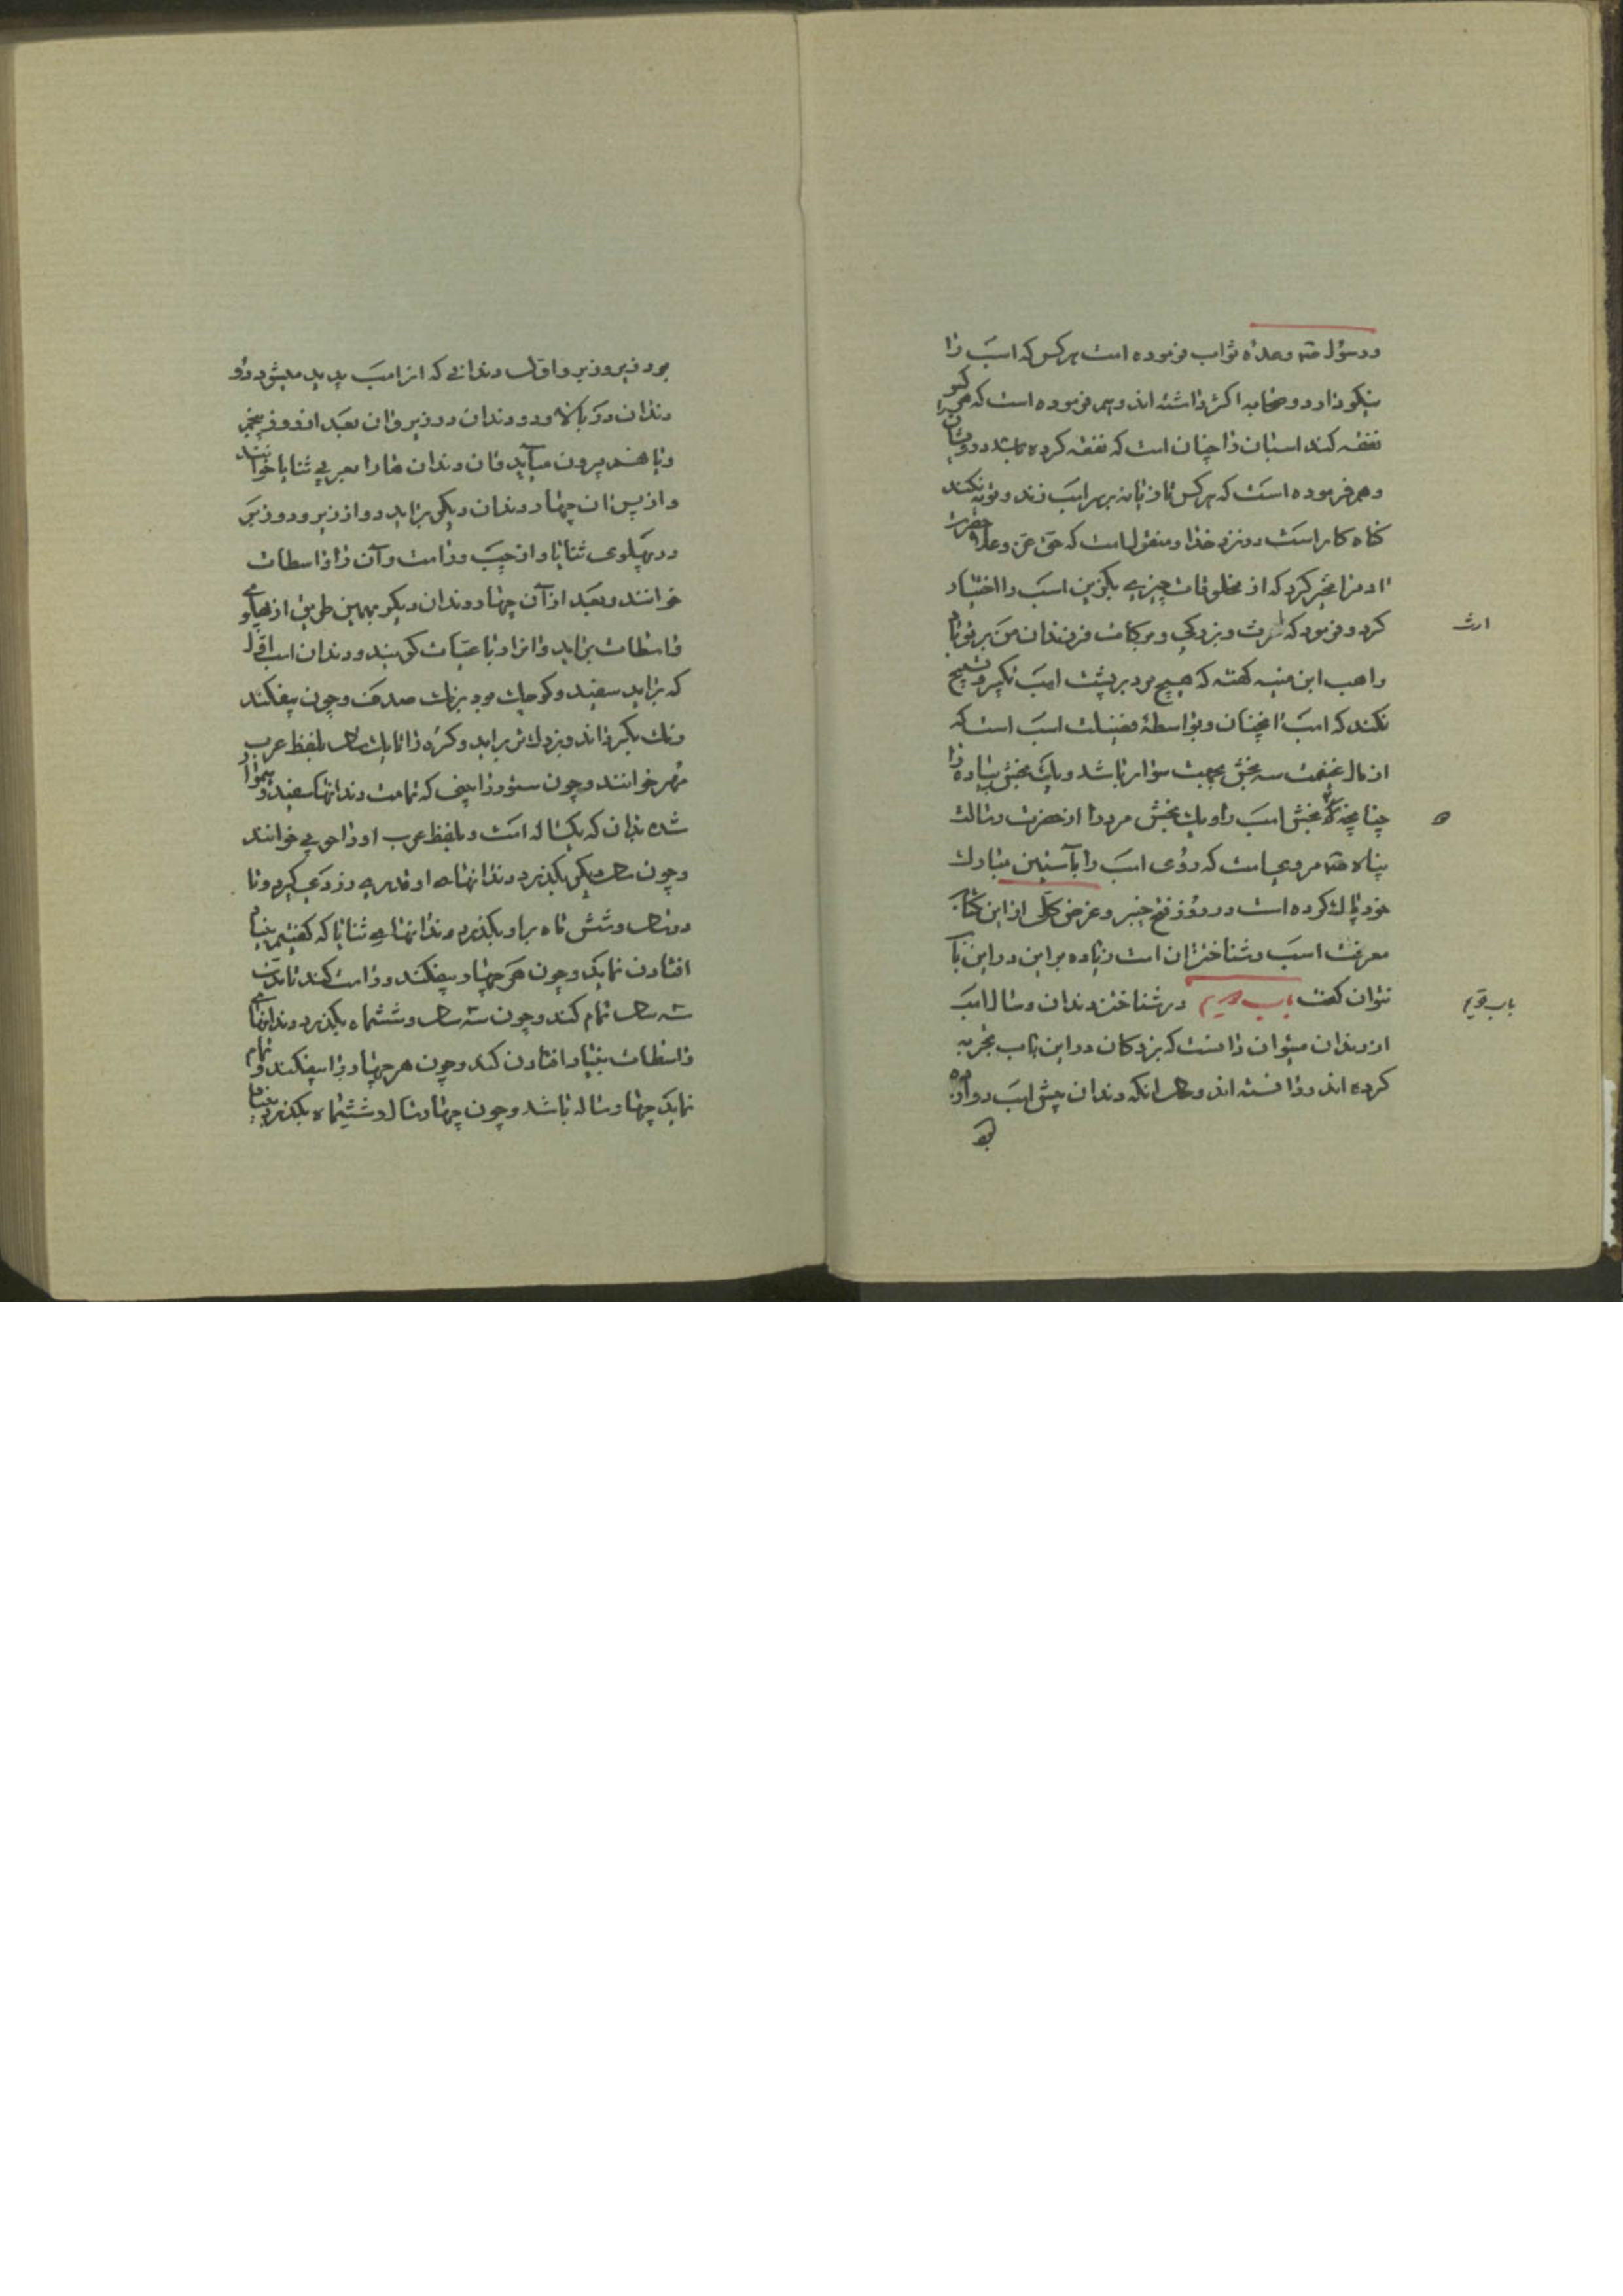 ورسول صه وعده ثواب فرموده است هرکس که اسب را
نیکو دارد وصحابه اکثر داشته اند وهم فرموده است که هر کو
نفقه کند اسبان را چنان است که نفقه کرده باشد درویشان را
وهم فرموده است که هرکس تازیانه بر سر اسب زند و توبه نکند
کناه کار است در نزد خدا و منقولست که حق عز وعلا حضرت
ادم را مخیر کرد که از مخلوقات چیزی بگزین اسب را اختیار
کرد و فرمود که عزت و بزرکی و برکات فرزندان من بر تو باد
ارث
واهب ابن منبه کفته که هیچ مرد بر پشت اسب تکبیر و تسبیح
نکند که اسب را همچنان و بواسطهٔ فضیلت اسب است که
از مال غنیمت سه بخش بجهت سوار باشد و یک بخش پیاده را
چنانچه بخش اسب را و یک بخش مرد را از حضرت رسالت
پناه صه مرویست که روی اسب را بآستین مبارک
خود پاک کرده است در روز فتح خیبر و غرض کلی از این کتاب
معرفت اسب و شناختن ان است زیاده بر این در این باب
نتوان کفت باب دویم در شناختن دندان و سال اسب
باب دویم
از دندان میتوان دانست که بزرکان در این باب تجربه
کرده اند و دانسته اند و حال انکه دندان پیش اسب دوازده
بود
بود زیر و زبر و اول دندانی که از اسب پدید میشود دو
دندان در بالا و دو دندان در زیر و ان بعد از روز پنجم
و یا هفتم بیرون میآید و ان دندان ها را بعربی ثنایا خوانند
و از پس ان چهار دندان دیکر براید دو از زیر و دو زبر
در پهلوی ثنایا و از چپ و راست و آن را واسطات
خوانند و بعد از آن چهار دندان دیکر بهمین طریق از پهلوی
واسطات براید و انرا رباعیات کویند و دندان اسب اول
که براید سفید و کوچک بود برنک صدف و چون بیفکند
رنک بکرداند و بزرك تر براید و کره را تا یک سال بلفظ عرب
مهر خوانند و چون ستور را بینی که تمامت دندانها سفید و هموار
شده بدان که یکساله است و بلفظ عرب او را حولی خوانند
و چون سال دیکر بکذرد دندانهای او قدری زردی کیرد و تا
دو سال و شش ماه بر او بکذرد دندانهای ثنایا که کفتیم بنیاد
افتادن نماید و چون هر چهار بیفکند و راست کند تا مدت
سه سال تمام کند و چون سه سال و ششماه بکذرد دندانهای
واسطات بنیاد افتادن کند و چون هر چهار را بیفکند و تمام
نماید چهار ساله باشد و چون چهار سال و ششماه بکذرد بنیاد